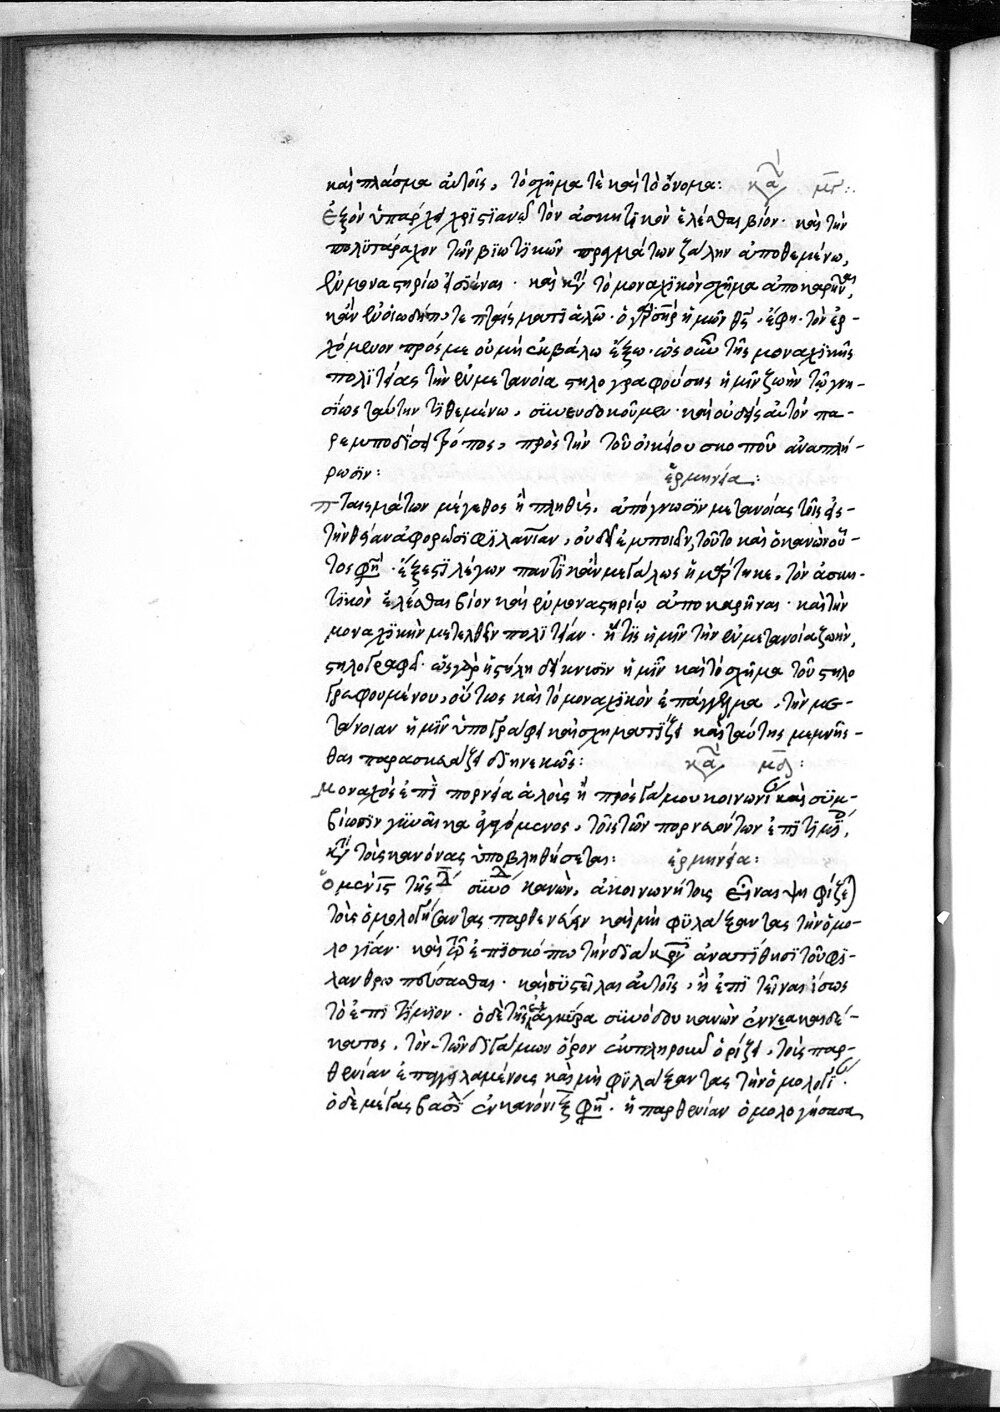 καὶ πλάσμα αὐτοῖς, τὸ σχῆμα τὲ καὶ τὸ ὄνομα: κα̅ μγ:
Ἐξὸν ὑπάρχει χριστϊανῶ τὸν ἀσκητϊκὸν ἑλέσθαι βίον· καὶ τὴν
πολυτάραχον τῶν βϊωτϊκῶν πραγμάτων ζάλην ἀποθεμένω,
ἐν μοναστηρίω εἰσϊέναι· καὶ κατὰ τὸ μοναχϊκὸν σχῆμα ἀποκαρῆναι,
κἂν ἐν οἱωδήποτε πταίσματι ἁλῶ· ὁ γὰρ σηρ ἡμῶν θς, ἔφη· τὸν ἐρ-
χόμενον πρός με οὐ μὴ ἐκβάλω ἔξω· ὡς οὖν τῆς μοναχϊκῆς
πολϊτείας τὴν ἐν μετανοία στηλογραφούσης ἡμῖν ζωὴν τῷ γνη-
σϊως ταύτην τϊθεμένω, συνευδοκοῦμεν· καὶ οὐδεὶς αὐτὸν πα-
ρεμποδίσει τρόπος, πρὸς τὴν τοῦ οἰκείου σκοποῦ ἀναπλή-
ρωσϊν: ἑρμηνεία:
πταισμάτων μέγεθος ἢ πλῆθος, ἀπόγνωσϊν μετανοίας τοῖς εἰς
τὴν θείαν ἀφορῶσϊ φϊλανίαν, οὐδὲ ἐμποιεῖν, τοῦτο καὶ ὁ κανὼν οὗ-
τος φη· ἔξεστϊ λέγων παντϊ κἂν μεγάλως ἡμάρτηκε, τὸν ἀσκη-
τϊκὸν ἑλέσθαι βίον καὶ ἐν μοναστηρίῳ ἀποκαρῆναι· καὶ τὴν
μοναχϊκὴν μετελθεῖν πολϊτείαν· ἥτϊς ἡμῖν τὴν ἐν μετανοία ζωὴν,
στηλογραφεῖ· ὡς γὰρ ἡ στήλη δείκνυσϊν ἡμῖν καὶ τὸ σχῆμα τοῦ στηλο
γραφουμένου, οὕτως καὶ τὸ μοναχϊκὸν ἐπάγγελμα, τὴν με-
τάνοιαν ἡμῖν ὑπογράφει καὶ σχηματίζει καὶ ταύτης μεμνῆσ-
θαι παρασκευάζει δϊηνεκῶς: κα̅ μδ:
μοναχὸς ἐπὶ πορνεία ἁλοὺς ἢ πρὸς γάμου κοινωνί καὶ συμ-
βίωσϊν γυναῖκα ἀγόμενος, τοῖς τῶν πορνευόντων ἐπϊτϊμί,
κατὰ τοὺς κανόνας ὑποβληθήσεται: ἑρμηνεία:
ὁ μὲν ις τῆς δ συνό κανὼν, ἀκοινωνήτους εἶναι ψηφίζε
τοὺς ὁμολογήσαντας παρθενεύειν καὶ μὴ φϋλάξαντας τὴν ὁμο-
λογίαν· καὶ τῶ ἐπϊσκόπω τὴν διάκρι ἀνατίθησϊ τοῦ φϊ-
λανθρωπεύσασθαι· καὶ συστεῖλαι αὐτοῖς, ἢ ἐπϊτεῖναι ἴσως
τὸ ἐπϊτίμϊον· ὁ δὲ τῆς ἐν ἀγκύρα συνόδου κανὼν ἐννεακαιδέ-
κατος, τὸν τῶν δϊγάμων ὅρον ἐκπληροῦν ὁρίζει, τοὺς παρ-
θενίαν ἐπαγγειλαμένους καὶ μὴ φϋλάξαντας τὴν ὁμολογί·
ὁ δὲ μέγας βασί ἐν κανόνι ξ φη· ἡ παρθενίαν ὁμολογήσασα